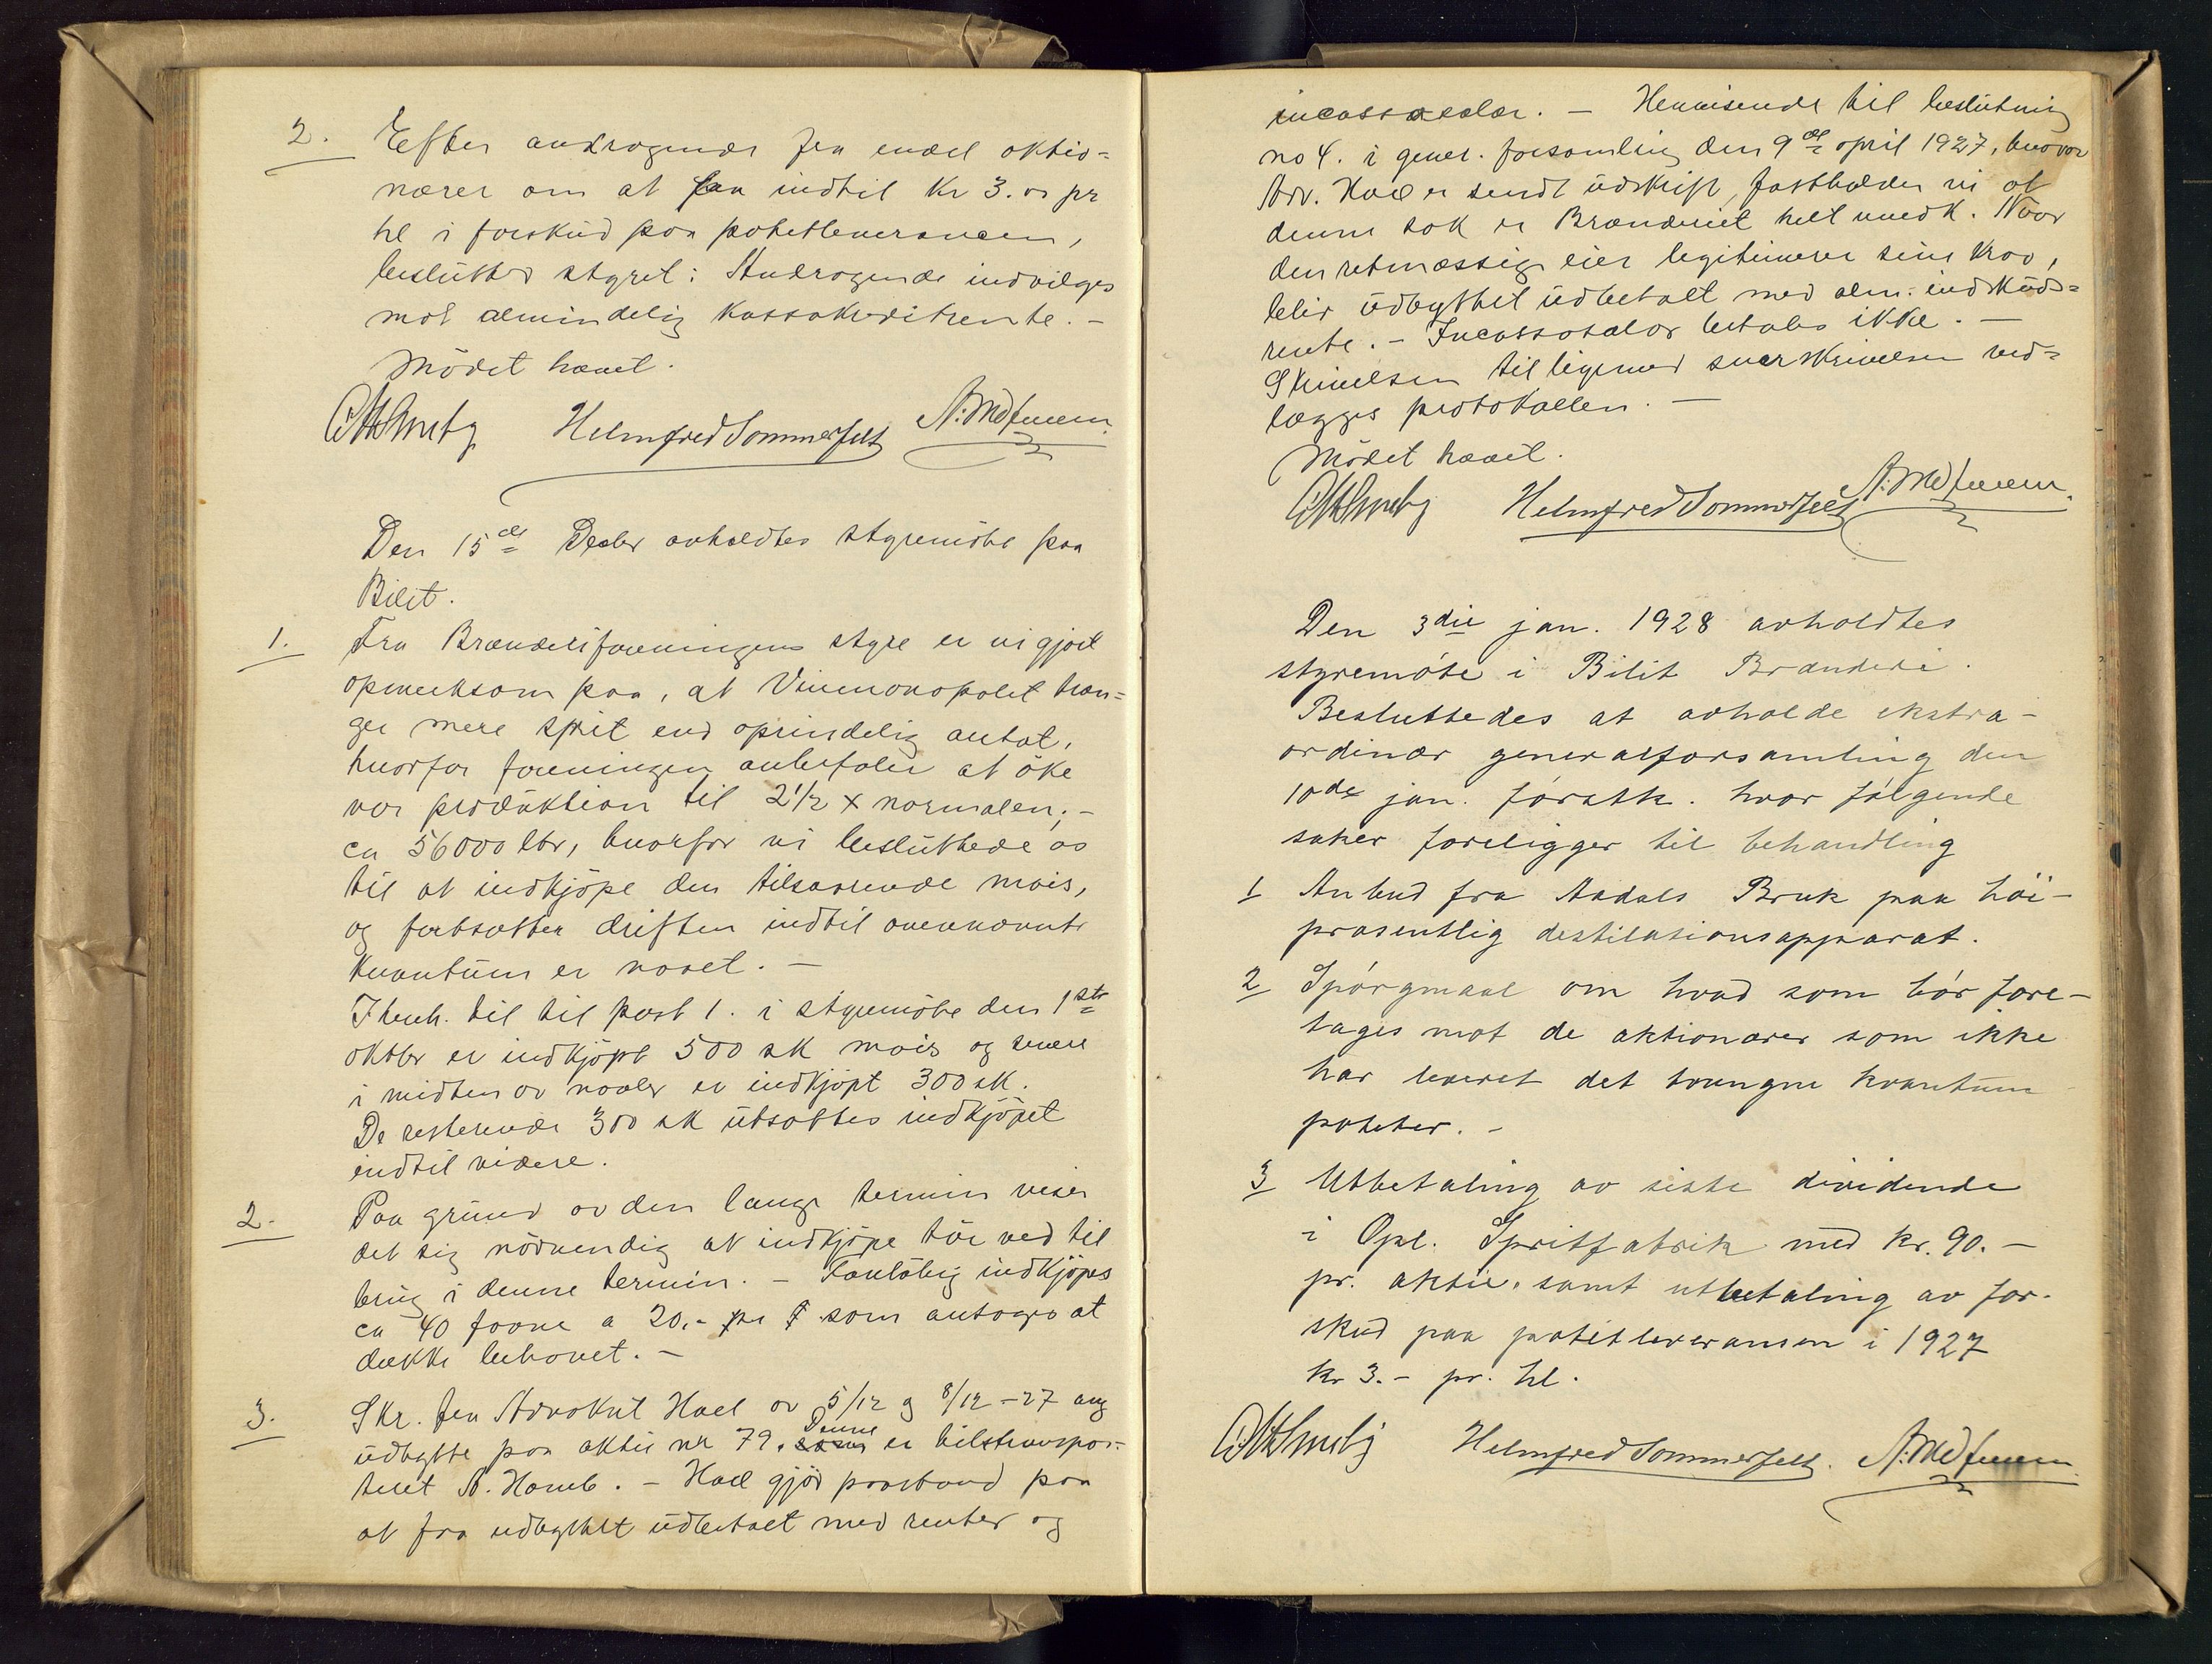 2. Efter andragende fra endel aktio=
nærer om at faa indtil Kr 3.00 pr
hl i forskud paa potetleveransen,
beslutter styret: Andragende indvilges
mot almindelig Kassakreditrente. -
Mödet hævet.
Helmfred Sommerfelt
Den 15de Decbr avholdtes styremöte paa
Bilit.
1. Fra Brænderiforeningens styre er vi gjort
opmerksom paa, at Vinmonopolet træn=
ger mere sprit end oprindelig antat,
hvorfor foreningen anbefaler at öke
vor produktion til 2 1/2 x normalen; -
ca 56000 ltr, hvorfor vi besluttede os
til at indkjöpe den tilsvarende mais,
og fortsætter driften indtil ovennævnte
Kvantum er naaet. -
I henh. til til post 1. i styremöte den 1ste
oktbr er indkjöpt 500 sk mais og senere
i midten av novbr er indkjöpt 300 sk.
De resterende 300 sk utsattes indkjöpet
indtil videre.
2. Paa grund av den lange termin viser
det sig nödvendig at indkjöpe tör ved til
brug i denne termin. - Foulöbig indkjöpes
ca 40 favne a 20.- pr f som antages at
dække behovet. -
3. Skr. fra Advokat Hoel av 5/12 og 8/12 - 27 ang
udbytte paa aktie nr 79. Denne er tiltranspor=
teret A. Homb. - Hoel gjör paastand paa
at faa udbyttet udbetalt med renter og
incassosalær. - Henvisende til beslutning
no 4. i gener. forsamling den 9de april 1927, hvorav
Adv. Hoel er sendt udskrift, fastholder vi at
denne sak er Brænderiet helt uvedk. Naar
den retmæssige eier legitimerer sine krav,
blir udbyttet udbetalt med alm. indskuds=
rente. - Incassosalær betales ikke. -
Skrivelsen tilligemed svarskrivelsen ved=
lægges protokollen. -
Mödet hævet.
Helmfred Sommerfelt
Den 3die jan. 1928 avholdtes
styremöte i Bilit Brænderi.
Besluttedes at avholde ekstra-
ordinær generalforsamling den
10de jan. förstk. hvor fölgende
saker foreligger til behandling
1 Anbud fra Aadals Bruk paa höi-
prosentlig destilationsapparat.
2 Spörgmaal om hvad som bör fore-
tages mot de aktionærer som ikke
har leveret det tvungne kvantum
poteter. -
3 Utbetaling av siste dividende
i Opl. Spritfabrik med kr. 90. -
pr. aktie, samt utbetaling av for-
skud paa potetleveransen i 1927
kr 3. - pr. hl.
Helmfred Sommerfelt.